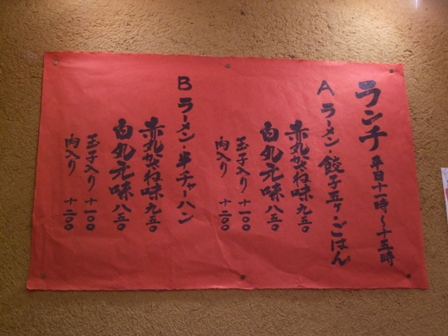 ランチ 平日十一時〜十五時
A ラーメン・餃子五ヶ・ごはん
赤丸かさね味 九五〇
白丸元味 八五〇
玉子入り 十一〇〇
肉入り 十二〇〇
B ラーメン・半チャーハン
赤丸かさね味 九五〇
白丸元味 八五〇
玉子入り 十一〇〇
肉入り 十二〇〇